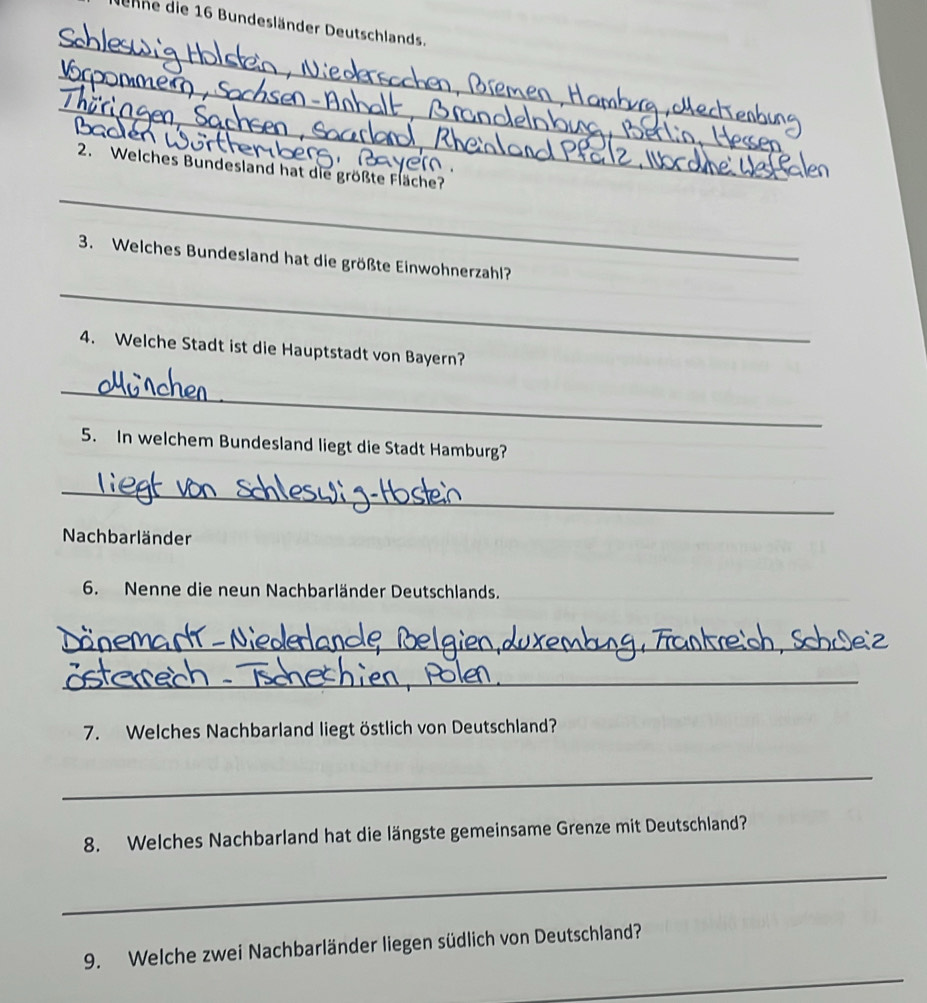 Nenne die 16 Bundesländer Deutschlands.
Schleswig Holstein, Niedersachen, Bremen, Hamburg, Mecklenbung
Vorpommern, Sachsen-Anhalt, Brandelnbung, Berlin, Hessen
Thüringen, Sachsen, Saarland, Rheinland Pfalz, Nordhei. Westfalen
Baden Württemberg, Bayern.
2. Welches Bundesland hat die größte Fläche?
3. Welches Bundesland hat die größte Einwohnerzahl?
4. Welche Stadt ist die Hauptstadt von Bayern?
München.
5. In welchem Bundesland liegt die Stadt Hamburg?
liegt von Schleswig-Hostein
Nachbarländer
6. Nenne die neun Nachbarländer Deutschlands.
Dänemark - Niederlande, Belgien, Luxembung, Frankreich, Schweiz
österreich - Tschechien, Polen.
7. Welches Nachbarland liegt östlich von Deutschland?
8. Welches Nachbarland hat die längste gemeinsame Grenze mit Deutschland?
9. Welche zwei Nachbarländer liegen südlich von Deutschland?